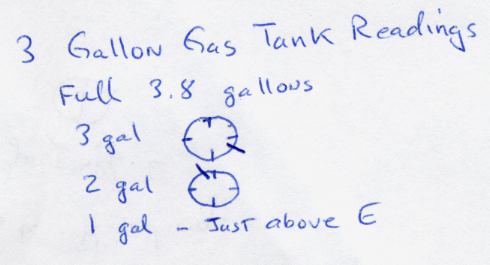 3 Gallon Gas Tank Readings
Full 3.8 gallons
3 gal
2 gal
1 gal - Just above E